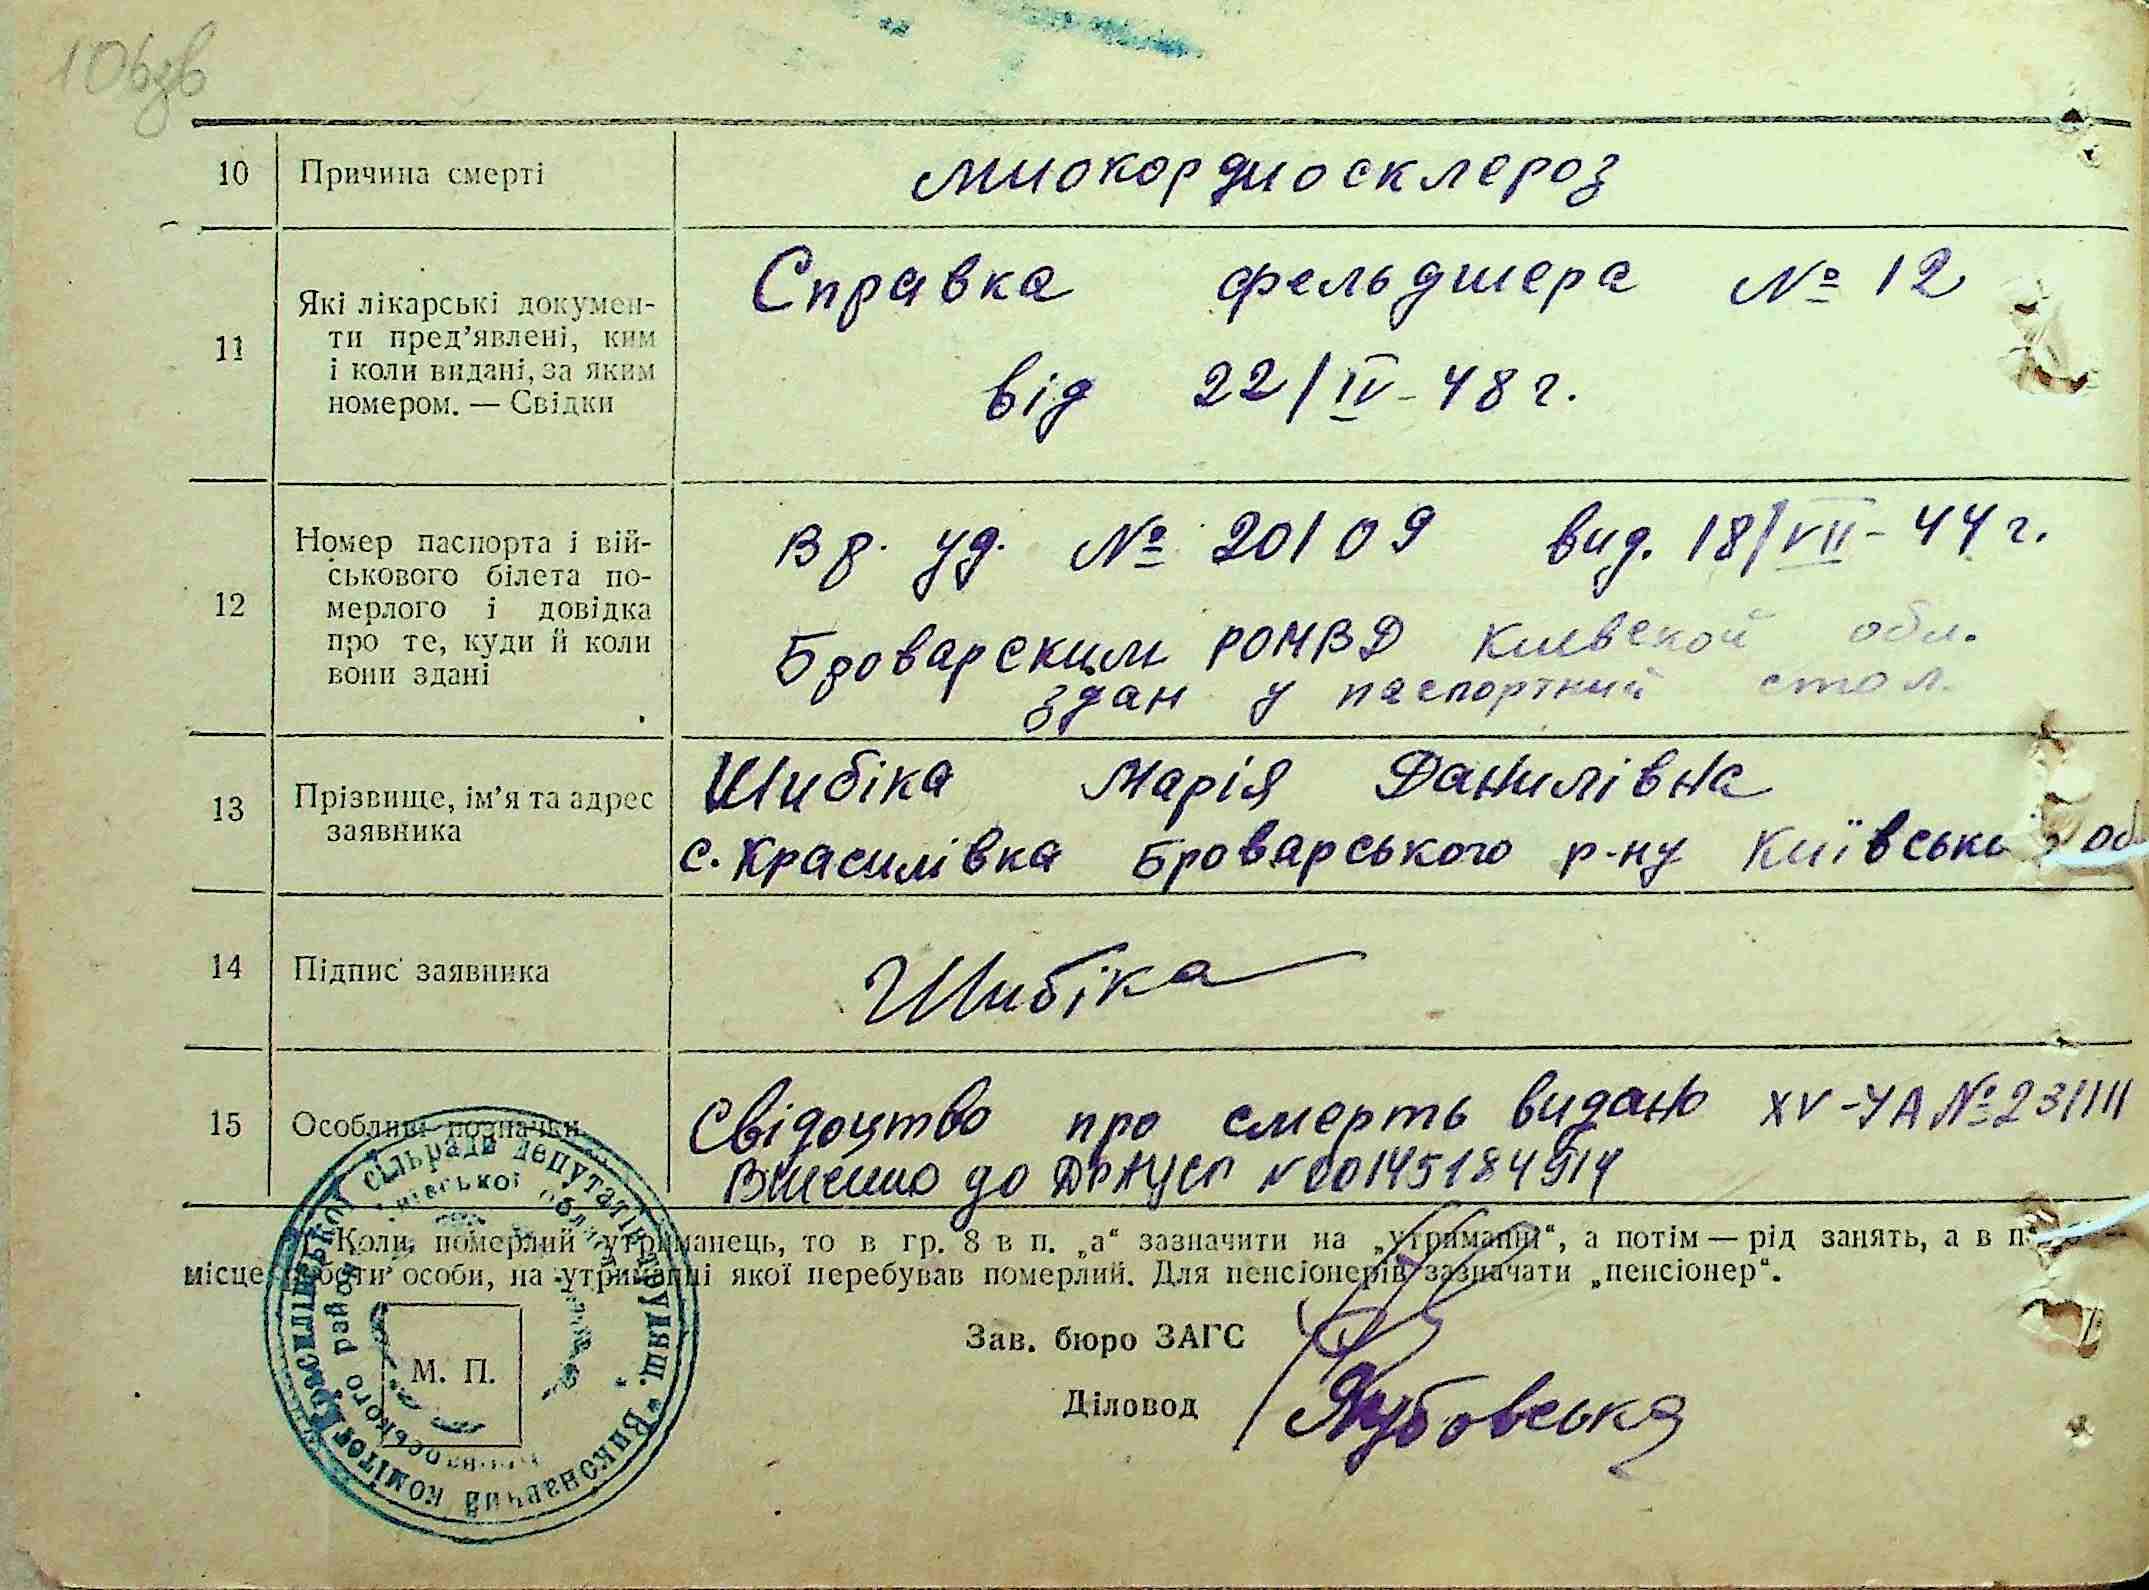 106зв
10 Причина смерті миокордиосклероз
11 Які лікарські докумен-
ти пред’явлені, ким
і коли видані, за яким
номером. — Свідки
Справка фельдшера № 12
від 22/IV-48 г.
12 Номер паспорта і вій-
ськового білета по-
мерлого і довідка
про те, куди й коли
вони здані
Вр. уд. № 20109 вид. 18/VII-44 г.
Броварским РОМВД Киевской обл.
здан у паспортний стол.
13 Прізвище, ім’я та адрес
заявника
Шибіка Марія Данилівна
с. Красилівка Броварського р-ну Київсько об
14 Підпис заявника Шибіка
15 Особливі позначки
Свідоцтво про смерть видано XV-УА № 231111
Внесено до ДРАЦСГ N 00145184914
Коли померлий утриманець, то в гр. 8 в п. „а“ зазначити на „утриманні“, а потім — рід занять, а в п.
місце роботи особи, на утриманні якої перебував померлий. Для пенсіонерів зазначати „пенсіонер“.
Зав. бюро ЗАГС
Діловод Якубовська
М. П.
Виконавчий комітет Красилівської сільради депутатів трудящ.
ського району Київської області